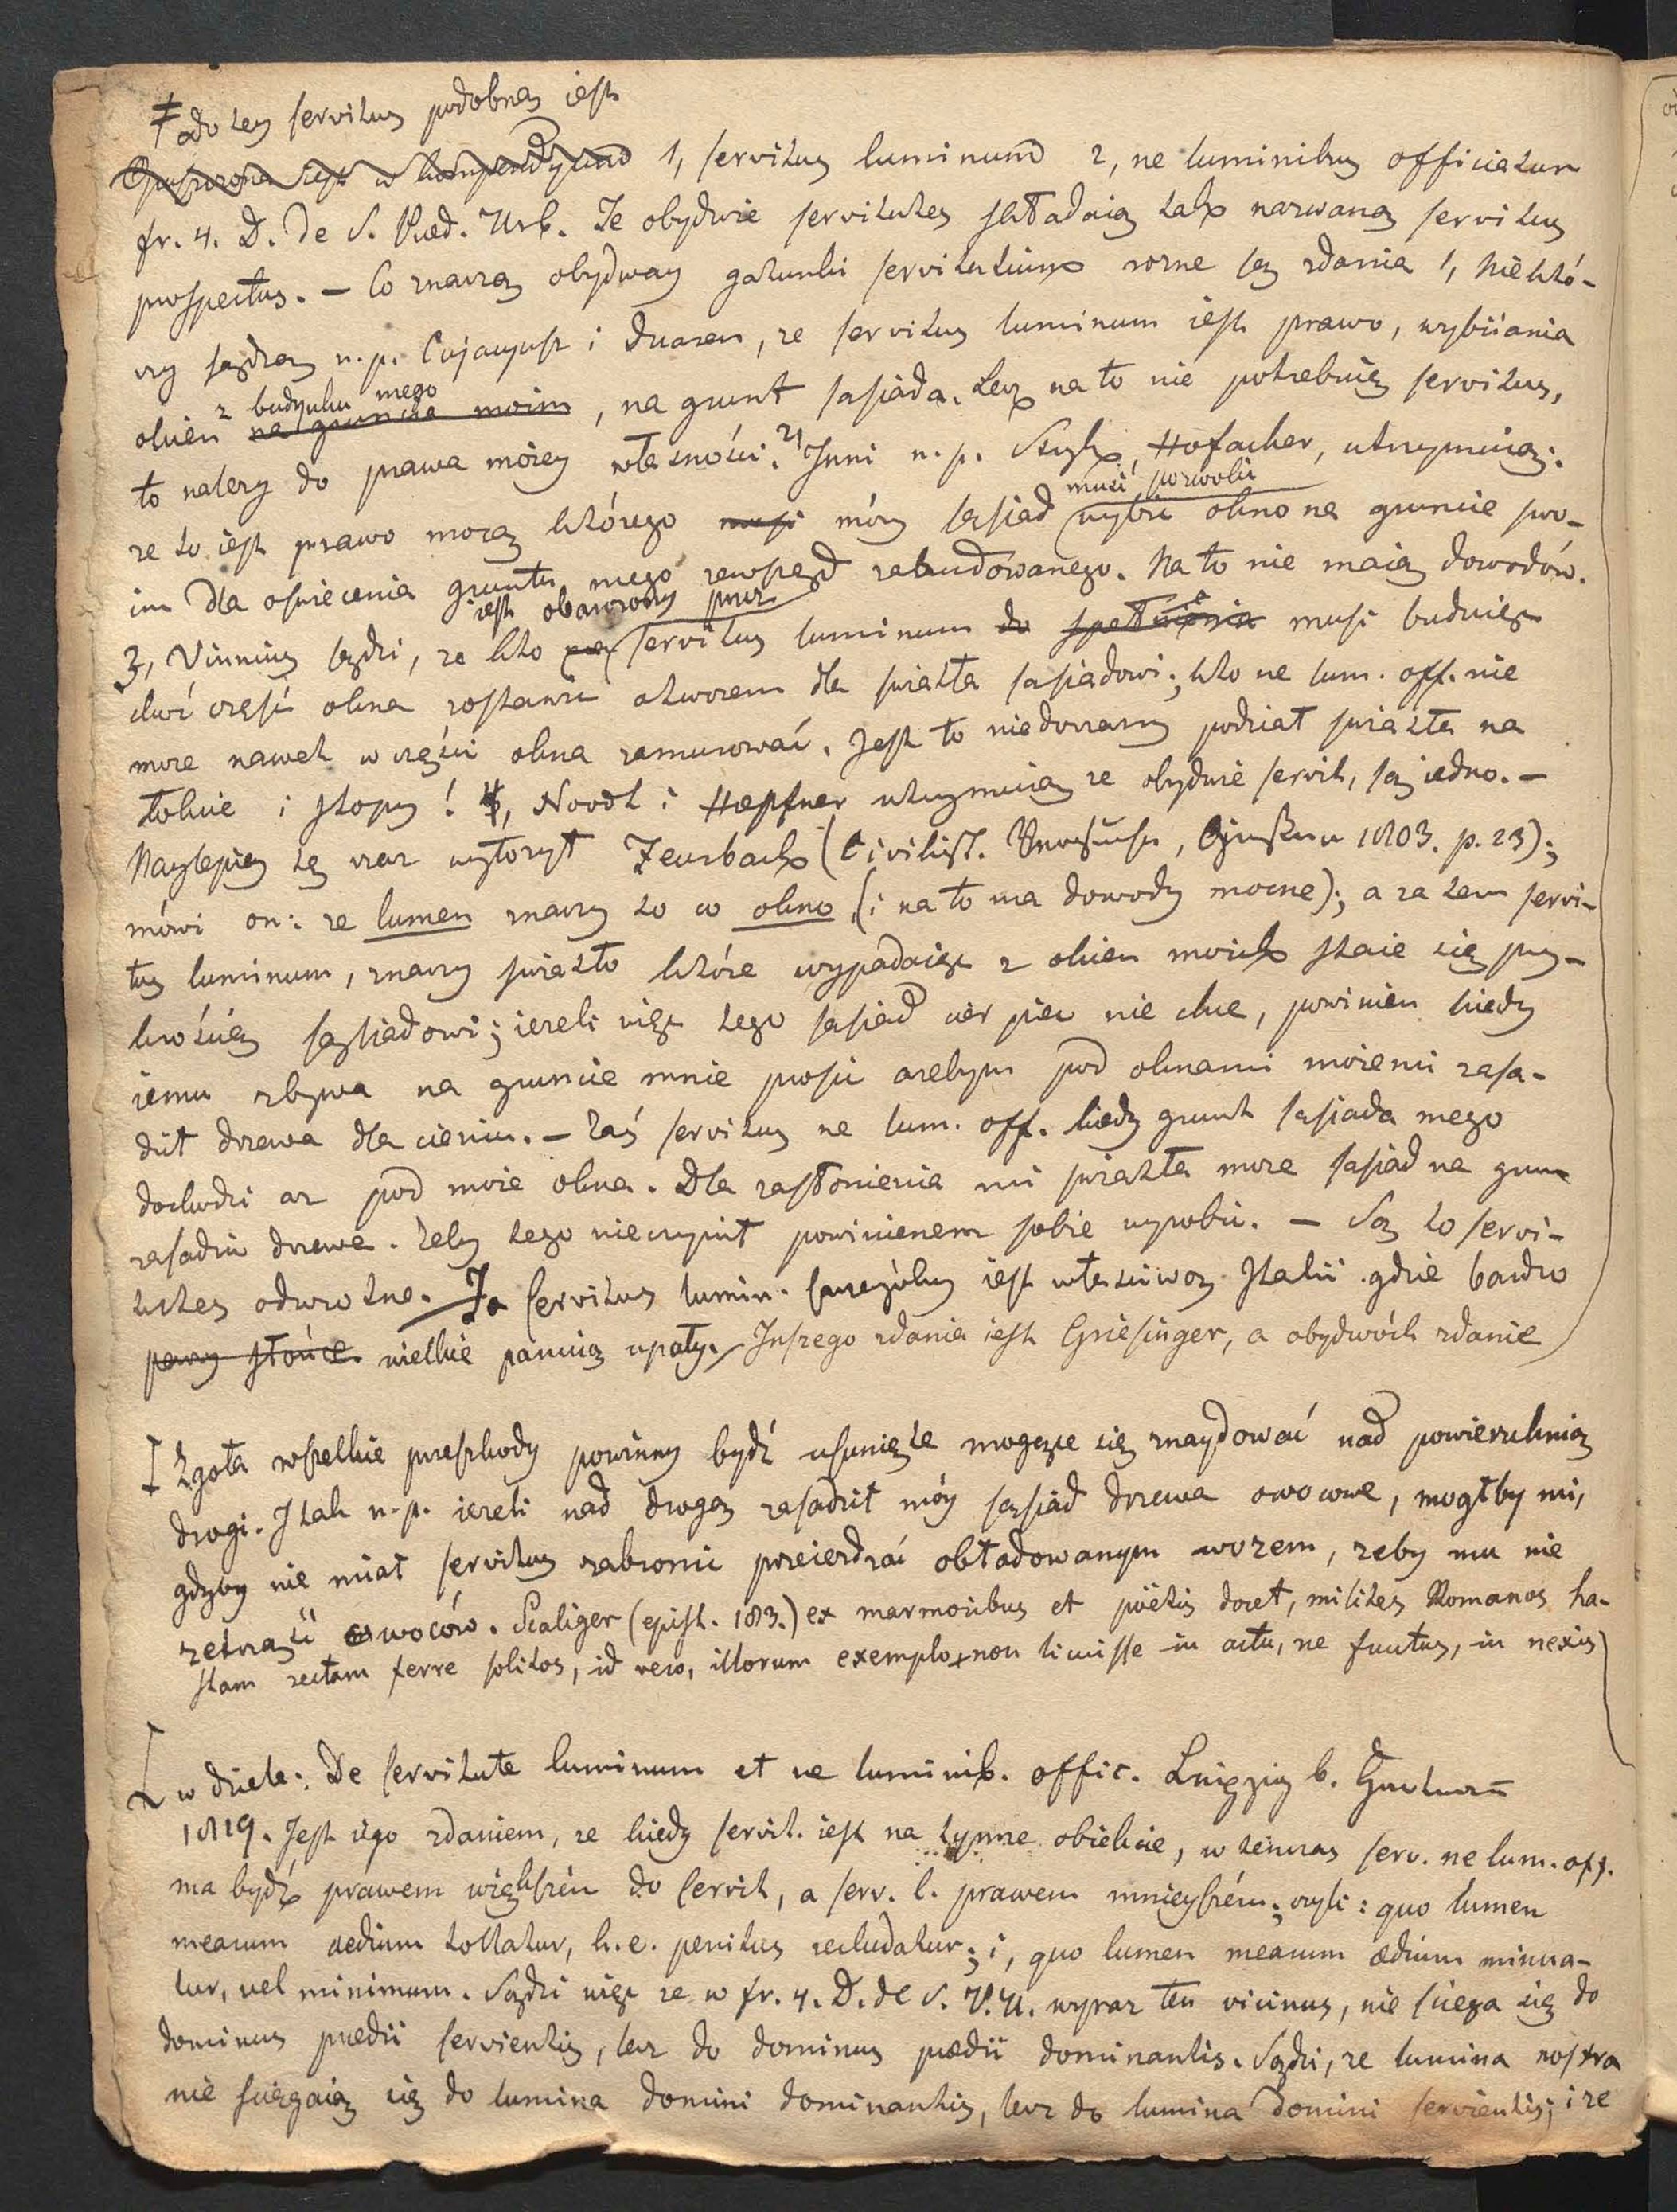 ‡ do tey servitus podobną iest
Opuszczona iest w kompendyum 1, servitus luminum 2, ne luminibus officiatur
fr. 4. D. De S. Præd. Urb. Te obydwie servitutes składaią tak nazwaną servitus
prospectus. – Co znaczą obydway gatunki servitutium rozne są zdania 1, Niektó-
rzy sądzą n.p. Cujaciusz i Duaren, ze servitus luminum iest prawo, wybiiania
okien z budynku mego na gruncie moim, na grunt sąsiada. Lecz na to nie potrzebuię servitus,
to nalezy do prawa moiey własności. 2, Inni n.p. Stryk, Hofacker, utrzymuią:
ze to iest prawo mocą którego musi móy sąsiad musi pozwolić wybić okno na gruncie swo-
im dla oswiecenia gruntu mego zewsząd zabudowanego. Na to nie maią dowodów.
3, Vinnius sądzi, ze kto iest obarczony przez servitus luminum do spełnienia musi buduiąc
choć część okna zostawić otworem dla swiatła sąsiadowi; kto ne lum. off. nie
moze nawet w części okna zamurować. Jest to niedorzeczny podział swiatła na
łokcie i stopy! 4, Noodt i Hœpfner utrzymuią ze obydwie servit. są iedno. –
Naylepiey tę rzecz wyłozył Feurbach (Civilist. Versuche, Giessen 1803. p. 23);
mówi on: ze lumen znaczy to co okno (i na to ma dowody mocne); a za tem servi-
tus luminum, znaczy swiatło które wypadaiąc z okien moich staie się przy-
krością sąsiadowi; iezeli więc tego sąsiad cierpieć nie chce, powinien kiedy
iemu zbywa na gruncie mnie prosić azebym pod oknami moiemi zasa-
dził drzewa dla cieniu. – Zaś servitus ne lum. off. kiedy grunt sąsiada mego
dochodzi az pod moie okna. Dla zasłonienia mi swiatła moze sąsiad na grun
zasadzić drzewa. Zeby tego nieczynił powinienem sobie wyrobić. – Są to servi-
tutes odwrotne. Ta servitus lumin. szczególny iest właściwą Italii gdzie bardzo
parzy słońce. wielkie panuią upały. Inszego zdania iest Griesinger, a obydwóch zdanie
I Zgoła wszelkie przeszkody powinny bydź usunięte mogące się znaydować nad powierzchnią
drogi. I tak n.p. iezeli nad drogą zasadził móy sąsiad drzewa owocowe, mogłby mi,
gdyby nie miał servitus zabronić przeierdzać obładowanym wozem, zeby mu nie
zetrząść owoców. Scaliger (epist. 183.) ex marmoribus et poëtis docet, milites Romanos ha-
stam rectam ferre solitos, id vero, illorum exemplo + non licuisse in actu, ne fructus, in nexius
I w dziele: De servitute luminum et ne luminib. offic. Lnipzig b.
1819. Jest iego zdaniem, ze kiedy servit. iest na tymze obiekcie, w tenczas serv. ne lum. off.
ma bydź prawem większem do servit, a serv. l. prawem mnieyszém; czyli: quo lumen
mearum aedium tollatur, h. e. penitus recludatur; i, quo lumen mearum ædium minua-
tur, vel minimum. Sądzi więc ze w fr. 4. D. de S. P. U. wyraz ten vicinus, nie ściąga się do
dominus prædii servientis, lecz do dominus prædii dominantis. Sądzi, ze lumina nostra
nie ściągaią się do lumina domini dominantis, lecz do lumina domini servientis; i ze